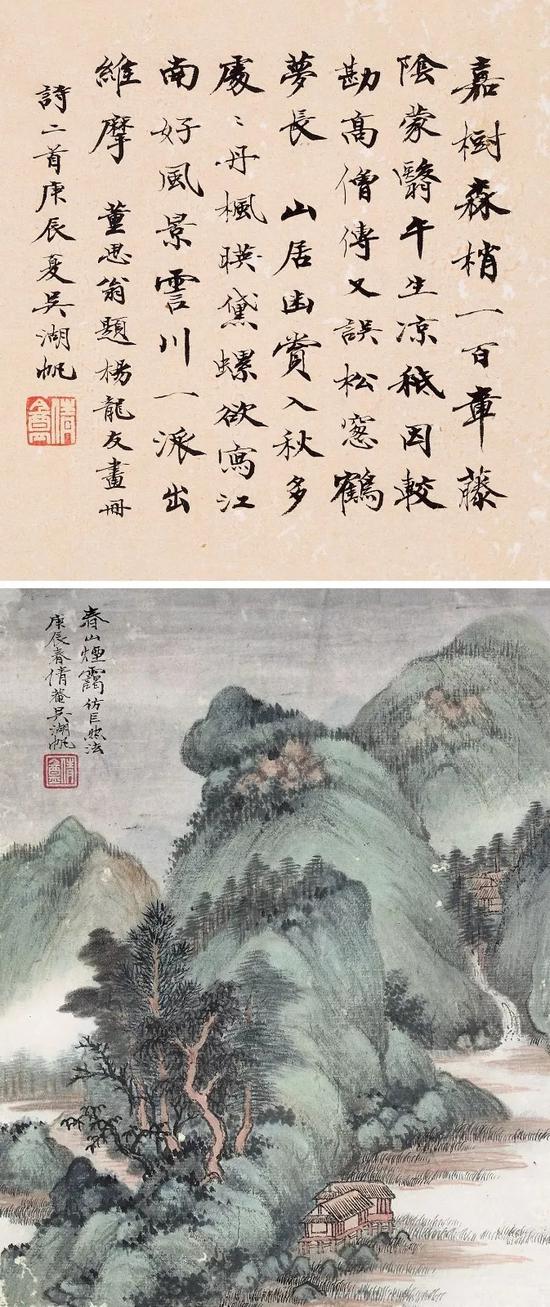 嘉樹森梢一百章藤
陰蒙翳午生凉秪因較
勘高僧傳又誤松窓鶴
夢長 山居幽賞入秋多
處〻丹楓暎黛螺欲寫江
南好風景雲川一派出
維摩 董思翁題楊龍友畫冊
詩二首庚辰夏吳湖帆
倩盦
春山煙靄仿巨然法
庚辰春倩菴吳湖帆
倩盦